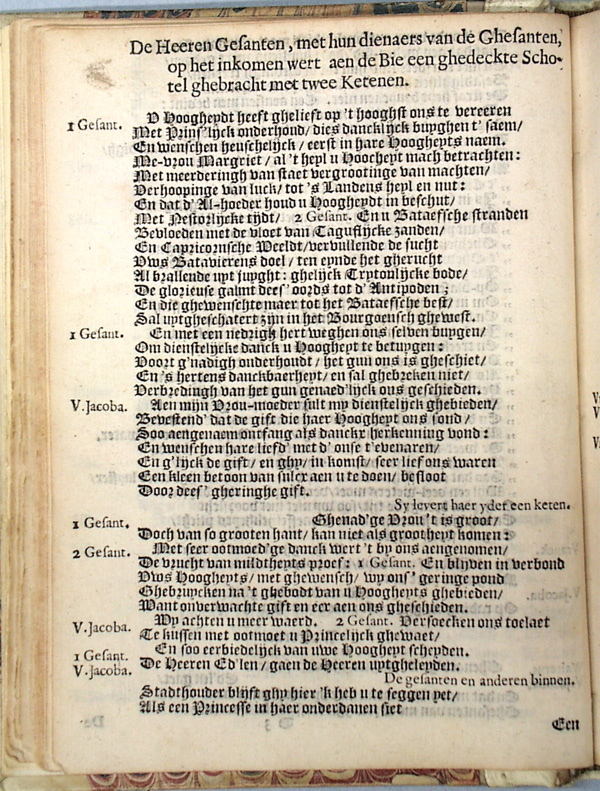 De Heeren Gesanten, met hun dienaers van de Ghesanten,
op het inkomen wert aen de Bie een ghedeckte Scho-
tel ghebracht met twee Ketenen.
1 Gesant. V Hoogheydt heeft gheliest op 't hooghst ons te vereeren
Met Prins'lijck onderhoud / dies dancklijck buyghen t' saem /
En wenschen heuschelijck / eerst in hare Hoogheyts naem.
Me-vrou Margriet / al 't heyl u Hoocheyt mach betrachten:
Met meerderingh van staet vergrootinge van machten /
Verhoopinge van luck / tot 's Landens heyl en nut:
En dat d' Al-hoeder houd u Hoogheydt in beschut /
Met Nestorlijcke tijdt / 2 Gesant. En u Bataefsche stranden
Bevloeden met de vloet van Taguslijcke zanden /
En Capricornsche Weeldt / vervullende de sucht
Vws Batavierens doel / ten eynde het gherucht
Al brallende uyt juyght: ghelijck Trytonlijcke bode /
De glorieuse galmt dees' oords tot d' Antipoden;
En die ghewenschte maer tot het Bataefsche best /
Sal uytgheschatert zijn in het Bourgoensch ghewest.
1 Gesant. En met een nedrigh hert weghen ons selven buygen /
Om dienstelijcke danck u Hoogheyt te betuygen:
Voort g'nadigh onderhoudt / het gun ons is gheschiet /
En 's hertens danckbaerheyt / en sal ghebreken niet /
Verbredingh van het gun genaed'lijck ons geschieden.
V. Jacoba. Aen mijn Vrou-moeder sult my dienstelijck ghebieden /
Bevestend' dat de gift die haer Hoogheyt ons sond /
Soo aengenaem ontfang als danckx herkenning vond:
En wenschen hare liefd' met d' onse t' evenaren /
En g'lijck de gift / en ghy / in komst / seer lief ons waren
Een kleen betoon van sulcx aen u te doen / besloot
Door dees' gheringhe gift.
Sy levert haer yder een keten.
1 Gesant. Ghenad'ge Vrou 't is groot /
Doch van so grooten hant / kan niet als grootheyt komen:
2 Gesant. Met seer ootmoed'ge danck wert 't by ons aengenomen /
De vrucht van mildtheyts proef: 1 Gesant. En blijven in verbond
Vws Hoogheyts / met ghewensch / wy ons' geringe pond
Ghebruycken na 't ghebodt van u Hoogheyts ghebieden /
Want onverwachte gift en eer aen ons gheschieden.
V. Jacoba. Wy achten u meer waerd. 2 Gesant. Versoecken ons toelaet
Te kussen met ootmoet u Princelijck ghewaet /
1 Gesant. En soo eerbiedelijck van uwe Hoogheyt scheyden.
V. Jacoba. De Heeren Ed'len / gaen de Heeren uytgheleyden.
De gesanten en anderen binnen.
Stadthouder blijft ghy hier 'k heb u te seggen yet /
Als een Princesse in haer onderdanen siet
Een